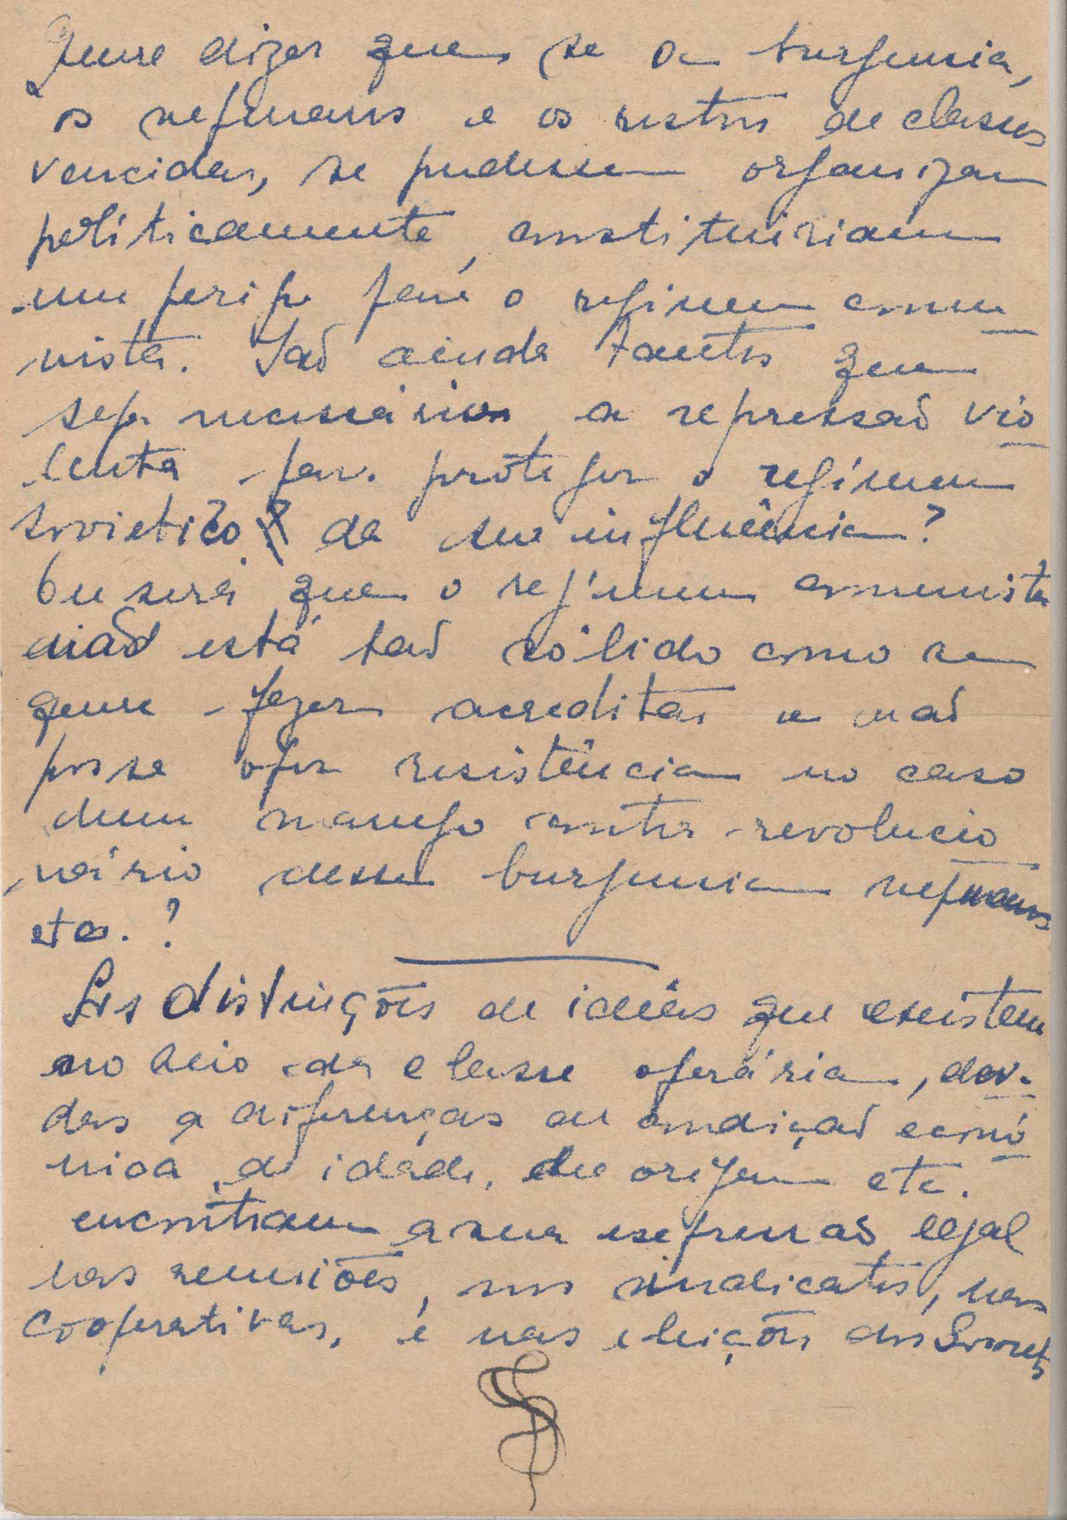 Quere dizer que, se a burguesia,
os nepmans e os restos de classes
vencidas, se pudessem organizar
políticamente, constituiriam
um perigo para o regimem comu
nista. São ainda tantos que
seja necessário a repressão vio
lenta para proteger o regímem
sovietico da sua influência?
Ou será que o regímem comunista
não está tão sólido como se
quere fazer acreditar e não
possa opor resistência no caso
dum manejo contra-revolucio
nário dessa burguesia nepmans
etc.?
As distinções de ideias que existem
no seio da classe operária, devi
das a diferenças de condição econó
mica, de idade, de origem etc.
encontram a sua expressão legal
nas reuniões, nos sindicatos, nas
cooperativas, e nas eleições dos Soviets